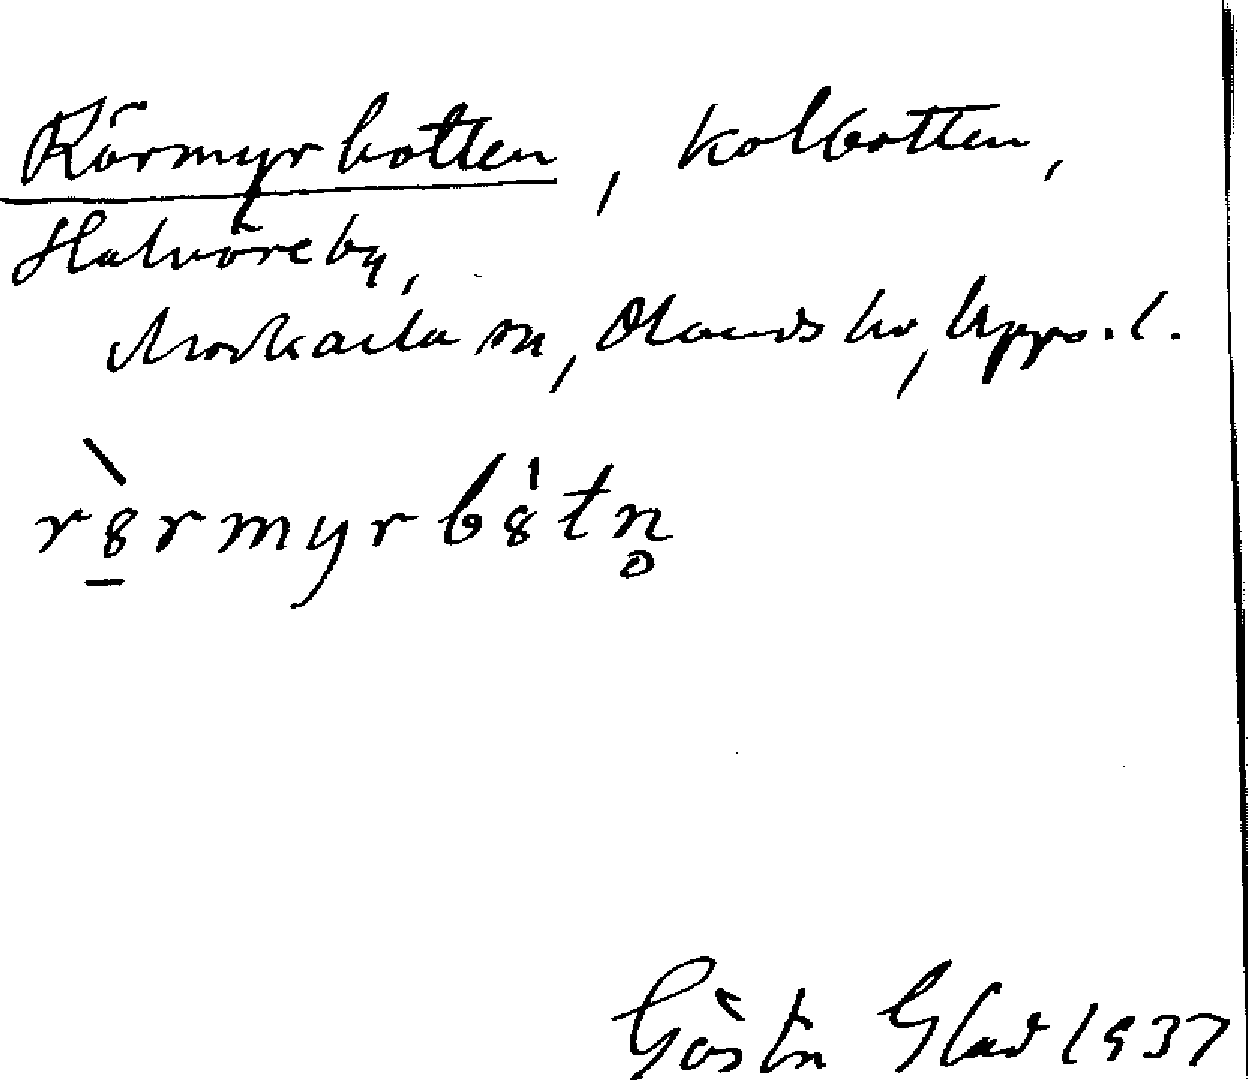 Rörmyrbotten, kolbotten,
Halvöreby,
Morkarla sn, Olands hd, Upps. l.
rö̀rmyrbö́tn̥
Gösta Glad 1937